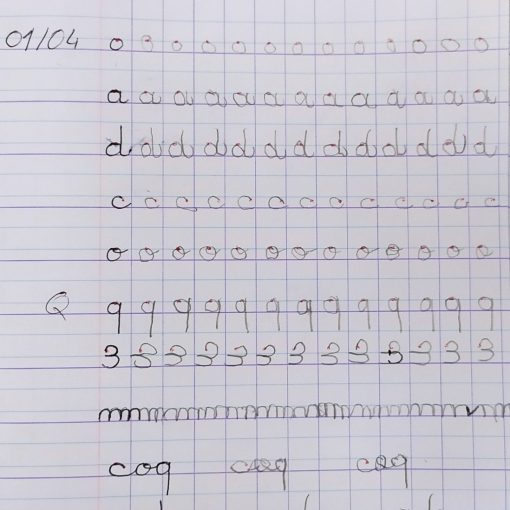 01/04 o o o o o o o o o o o o o
a a a a a a a a a a a a a
d d d d d d d d d d d d d
c c c c c c c c c c c c c
o o o o o o o o o o o o o
Q q q q q q q q q q q q q q
3 3 3 3 3 3 3 3 3 3 3 3 3
coq coq coq